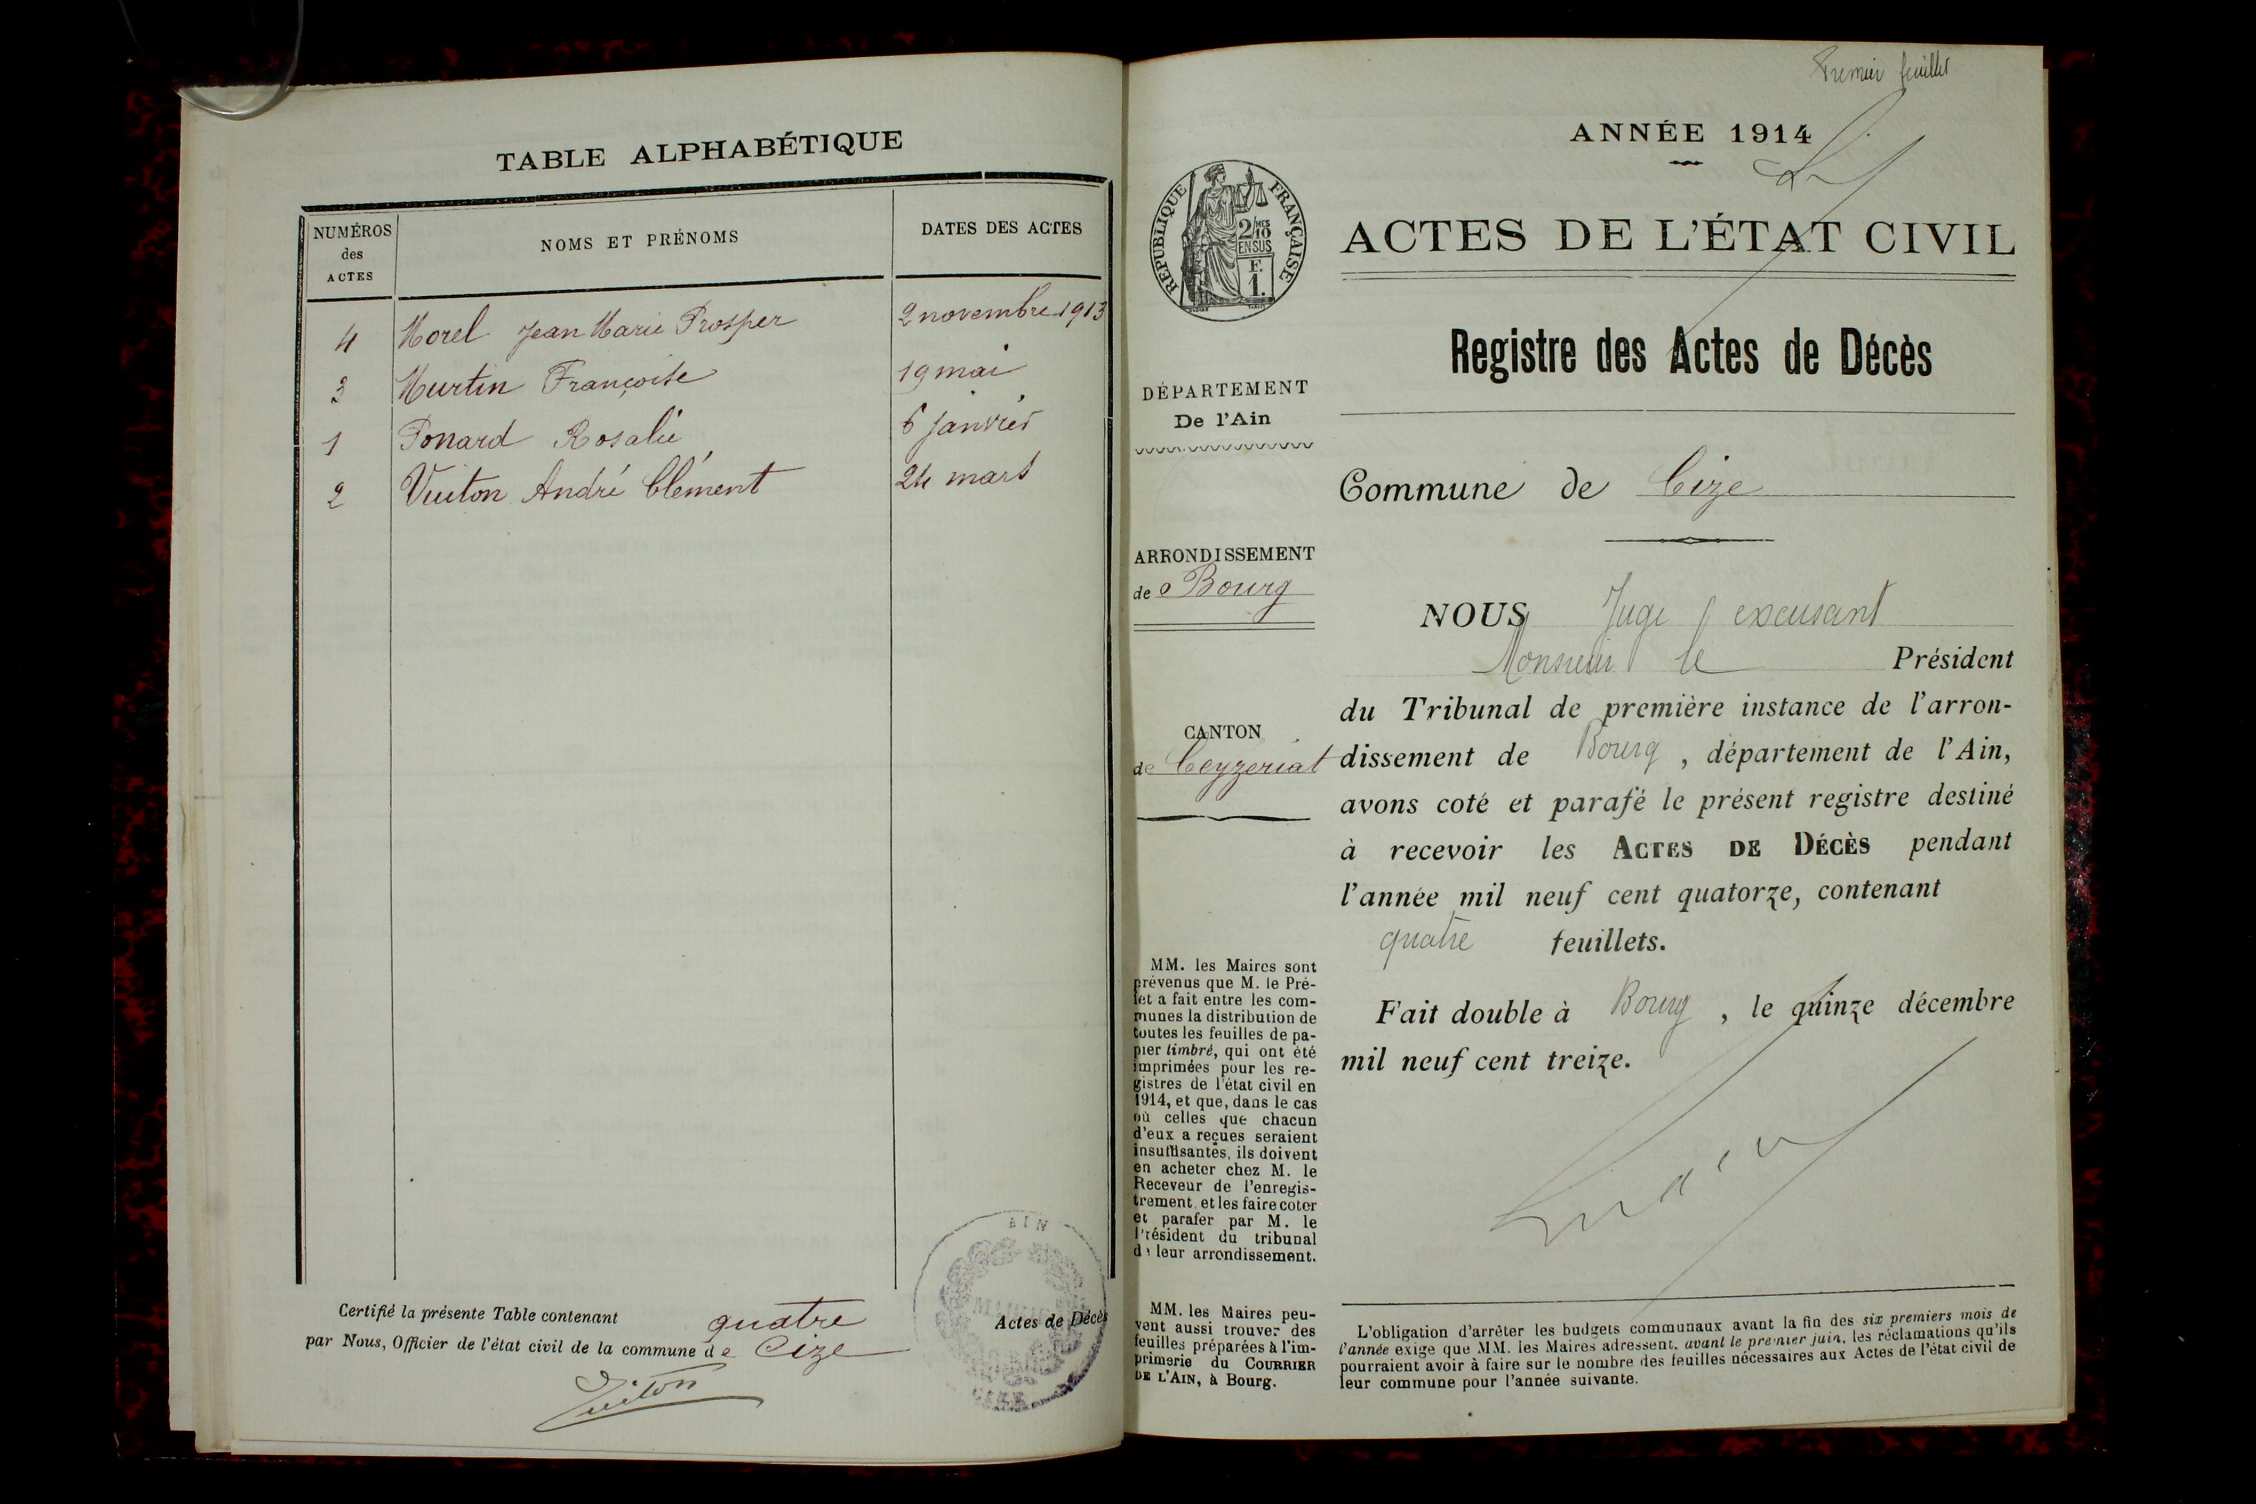 TABLE ALPHABÉTIQUE
NUMÉROS
des
ACTES
NOMS ET PRÉNOMS
DATES DES ACTES
4 Morel Jean Marie Prosper 2 novembre 1913
3 Murtin Françoise 19 mai
1 Ponard Rosalie 6 janvier
2 Vuiton André Clément 24 mars
Certifié la présente Table contenant quatre Actes de Décès
par Nous, Officier de l'état civil de la commune de Cize
Vuiton
AIN
MAIRIE
CIZE
Premier feuillet
ANNÉE 1914
RÉPUBLIQUE FRANÇAISE
2/10
EN SUS
F.
1.
ACTES DE L'ÉTAT CIVIL
Registre des Actes de Décès
DÉPARTEMENT
De l'Ain
Commune de Cize
ARRONDISSEMENT
de Bourg
CANTON
de Ceyzeriat
NOUS Juge excusant
Monsieur le Président
du Tribunal de première instance de l'arron-
dissement de Bourg, département de l'Ain,
avons coté et parafé le présent registre destiné
à recevoir les ACTES DE DÉCÈS pendant
l'année mil neuf cent quatorze, contenant
quatre feuillets.
Fait double à Bourg, le quinze décembre
mil neuf cent treize.
MM. les Maires sont
prévenus que M. le Pré-
fet a fait entre les com-
munes la distribution de
toutes les feuilles de pa-
pier timbré, qui ont été
imprimées pour les re-
gistres de l'état civil en
1914, et que, dans le cas
où celles que chacun
d'eux a reçues seraient
insuffisantes, ils doivent
en acheter chez M. le
Receveur de l'enregis-
trement, et les faire coter
et parafer par M. le
Président du tribunal
de leur arrondissement.
MM. les Maires peu-
vent aussi trouver des
feuilles préparées à l'im-
primerie du COURRIER
DE L'AIN, à Bourg.
L'obligation d'arrêter les budgets communaux avant la fin des six premiers mois de
l'année exige que MM. les Maires adressent, avant le premier juin, les réclamations qu'ils
pourraient avoir à faire sur le nombre des feuilles nécessaires aux Actes de l'état civil de
leur commune pour l'année suivante.